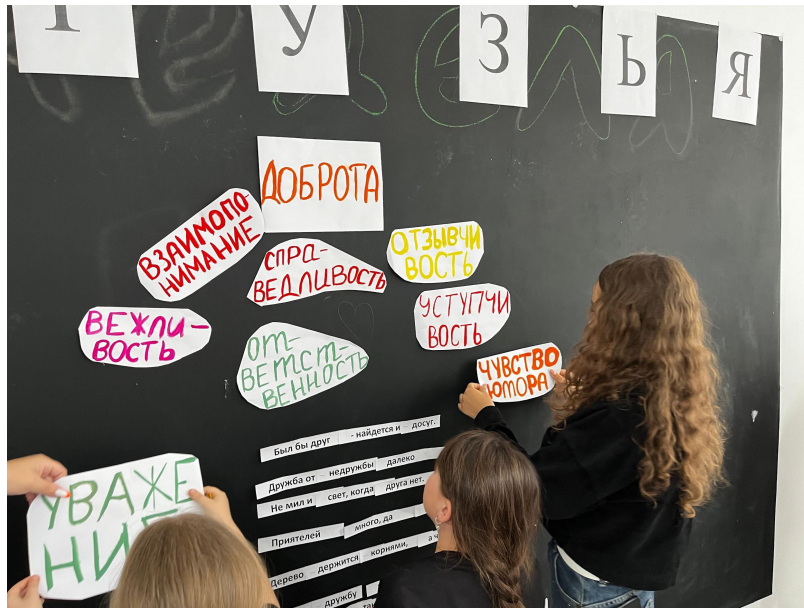 У
З
Ь
Я
ДОБРОТА
ВЗАИМОПО-
НИМАНИЕ
СПРА-
ВЕДЛИВОСТЬ
ОТЗЫВЧИ
ВОСТЬ
УСТУПЧИ
ВОСТЬ
ВЕЖЛИ-
ВОСТЬ
ОТ-
ВЕТСТ-
ВЕННОСТЬ
ЧУВСТВО
ЮМОРА
УВАЖЕ
НИЕ
Был бы друг - найдется и досуг.
Дружба от недружбы далеко
Не мил и свет, когда друга нет.
Приятелей много, да
Дерево держится корнями,
дружбу